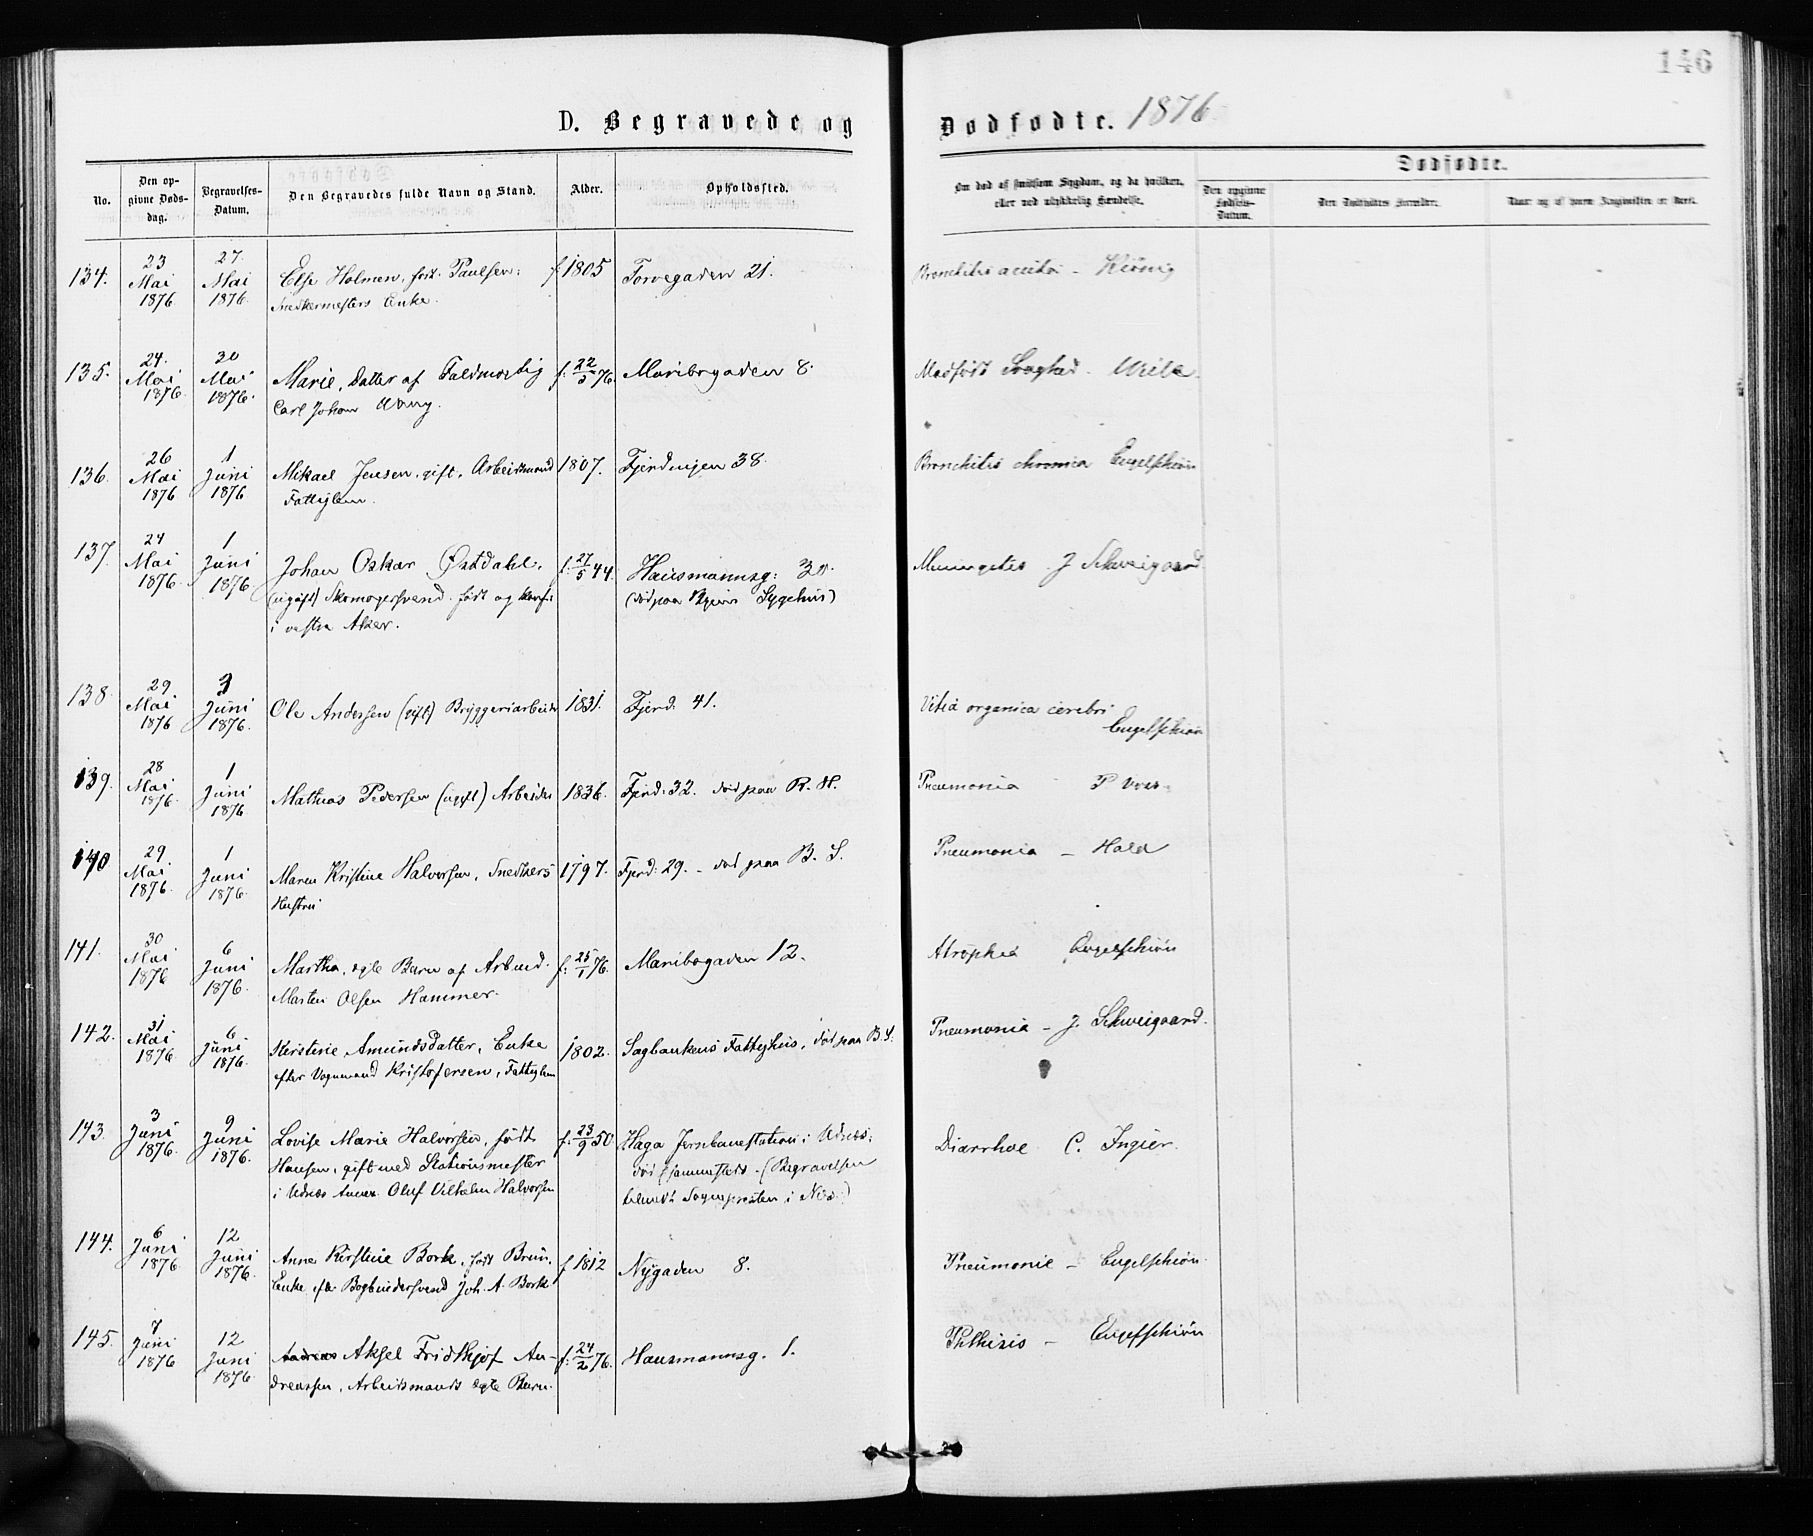 146
D. Begravede og Dødfødte. 1876
No.
Den opgivne Dødsdag.
Begravelses-Datum.
Den Begravedes fulde Navn og Stand.
Alder.
Opholdssted.
Om død af smitsom Sygdom, og da hvilken, eller ved ulykkelig Hændelse.
Dødfødte.
Den opgivne Fødsels-Datum.
Den Dødfødtes Forældre.
Naar og af hvem Angivelsen er skeet.
134. 23 Mai 1876 27. Mai 1876. Else Holmen, født Paulsen: f. 1805 Torvegaden 21. Bronchitis acuta -
Snedkermesters Enke.
135. 24. Mai 1876. 30 Mai 1876. Marie, Datter af Faldmostig f. 22/5 76. Maribogaden 8. Medfødt Svaghed.
Carl Johan Wang.
136. 26 Mai 1876 1 Juni 1876 Mikael Jensen, gift, Arbeidsmand 1807. Fjerdingen 38. Bronchitis chronica Engelschiøn
Fattiglem.
137. 24 Mai 1876. 1 Juni 1876. Johan Oskar Østdahl, f. 27/5 44. Hausmannsg: 30. Meningitis J Schweigaard.
(ugift) Skomagersvend. født og konf: (død paa Byens Sygehus)
i vestre Aker.
138. 29 Mai 1876 3 Juni 1876. Ole Andersen (gift) Bryggeriarbeider 1831. Fjerd: 41. Vitia organica cerebri
Engelschiøn
139. 28 Mai 1876. 1 Juni 1876 Mathias Pedersen (ugift) Arbeider 1836. Fjerd: 32. død paa R. H. Pneumonia P Voss.
140 29 Mai 1876. 1 Juni 1876. Maren Kristine Halvorsen, Snedkers 1797. Fjerd: 29. - død paa B. S. Pneumonia - Hald
Hustru
141. 30 Mai 1876 6 Juni 1876. Martha, egte Barn af Arbmd. f. 25/1 76. Maribogaden 12. Atrophia Engelschiøn
Marten Olsen Hammer.
142. 31 Mai 1876 6 Juni 1876. Kirstine Amundsdatter, Enke 1802. Sagbankens Fattighus, død paa B.S. Pneumonia - J. Schweigaard.
efter Vognmand Kristofersen, Fattiglem
143. 3 Juni 1876. 9 Juni 1876. Lovise Marie Halvorsen, født f. 23/9 50. Haga Jernbanestation i Udnæs; Diarrhoe C. Ingier.
Hansen, gift med Stationsmester død sammesteds - (Begravelsen
i Udnæs Annex Oluf Vilhelm Halvorsen Sognepresten i Næs.)
144. 6 Juni 1876. 12 Juni 1876. Anne Kirstine Bork, født Bruun, f 1812 Nygaden 8. Pneumonie - Engelschiøn.
Enke efter Bogbindersvend Joh. A. Bork
145. 7 Juni 1876 12 Juni 1876. Andreas Aksel Fridthjof An- f. 24/2 76. Hausmannsg. 1. Phthisis - Engelschiøn
dreassen, Arbeidsmands egte Barn.